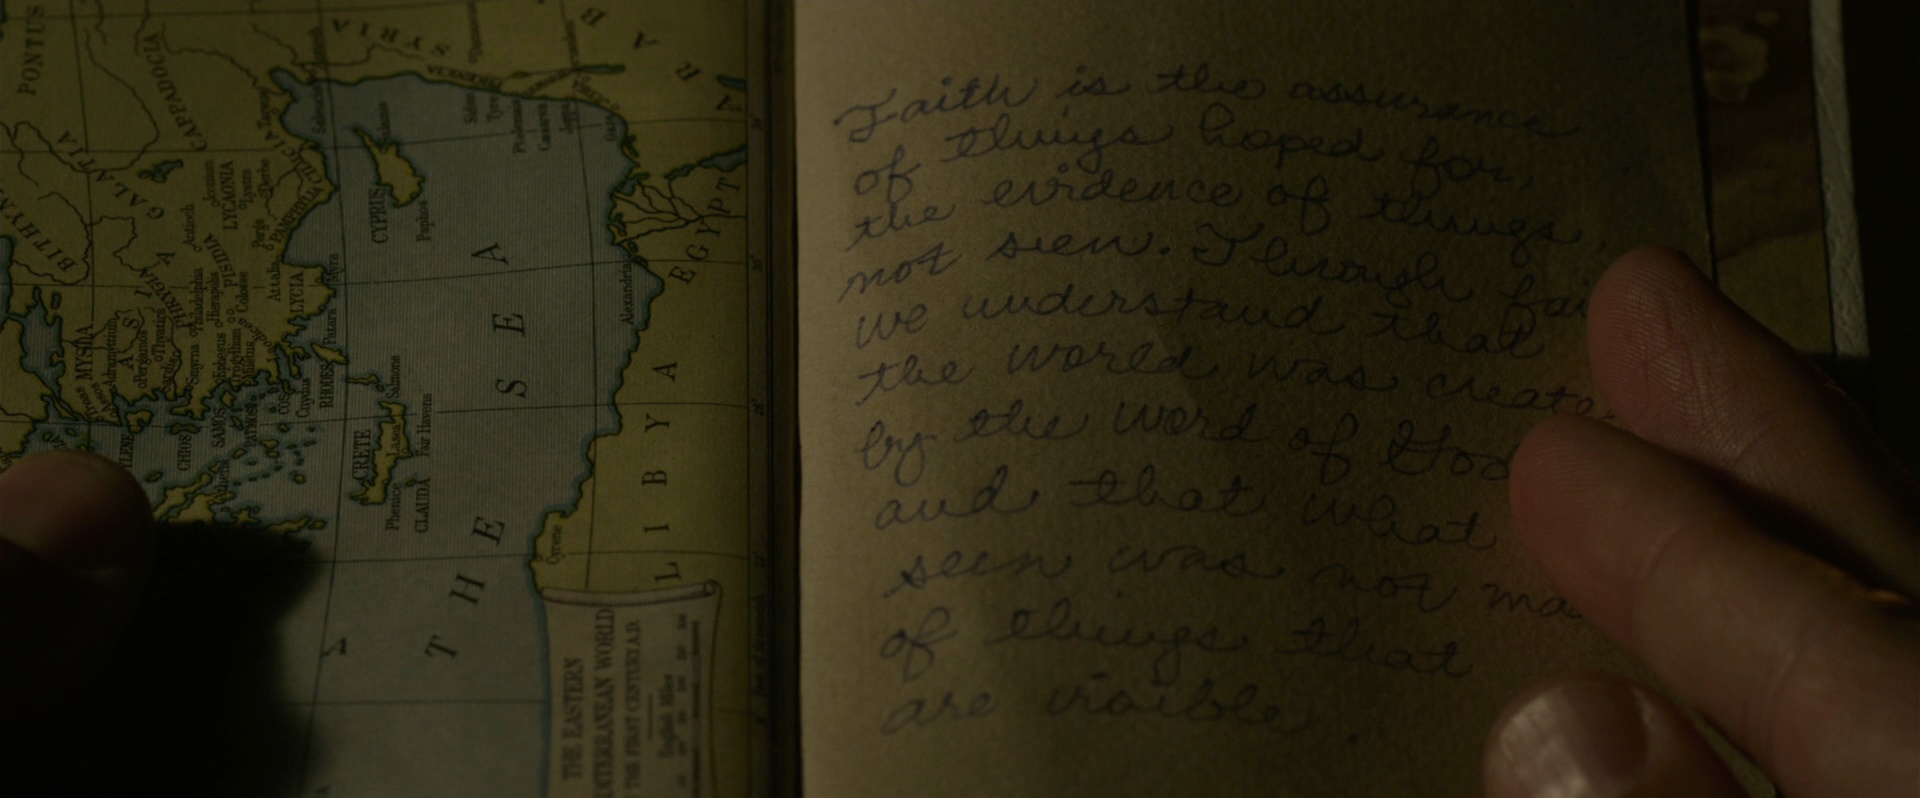 PONTUS
CAPPADOCIA
GALATIA
BITHYN
SYRIA
A R A
Tarsus
CILICIA
LYCAONIA
Derbe
PAMPHYLIA
PISIDIA
Antioch
Perga
Attalia
PHRYGIA
Philadelphia
Hierapolis
Colosse
LYCIA
Myra
Patara
MYSIA
Adramyttium
Assos
Pergamos
Thyatira
Smyrna
Ephesus
CHIOS
SAMOS
PATMOS
COS
Cnydus
RHODES
Athens
CYPRUS
Salamis
Paphos
Sidon
Tyre
Ptolemais
Caesarea
Joppa
Gaza
Alexandria
EGYPT
CRETE
Salmone
Lasea
Fair Havens
Phenice
CLAUDA
THE SEA
LIBYA
Cyrene
THE EASTERN
DITERRANEAN WORLD
THE FIRST CENTURY A.D.
English Miles
Faith is the assurance
of things hoped for,
the evidence of things,
not seen. Through fai
we understand that
the world was create
by the word of God
and that what
seen was not ma
of things that
are visible.